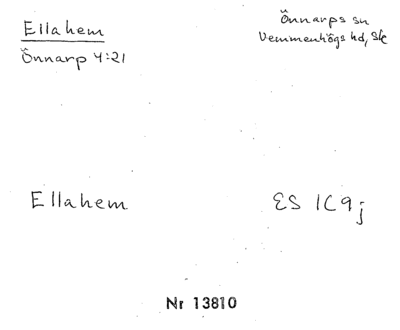 Ellahem
Önnarp 4:21
Önnarps sn
Vemmenhögs hd, Sk
Ellahem
ES 1C9j
Nr 13810